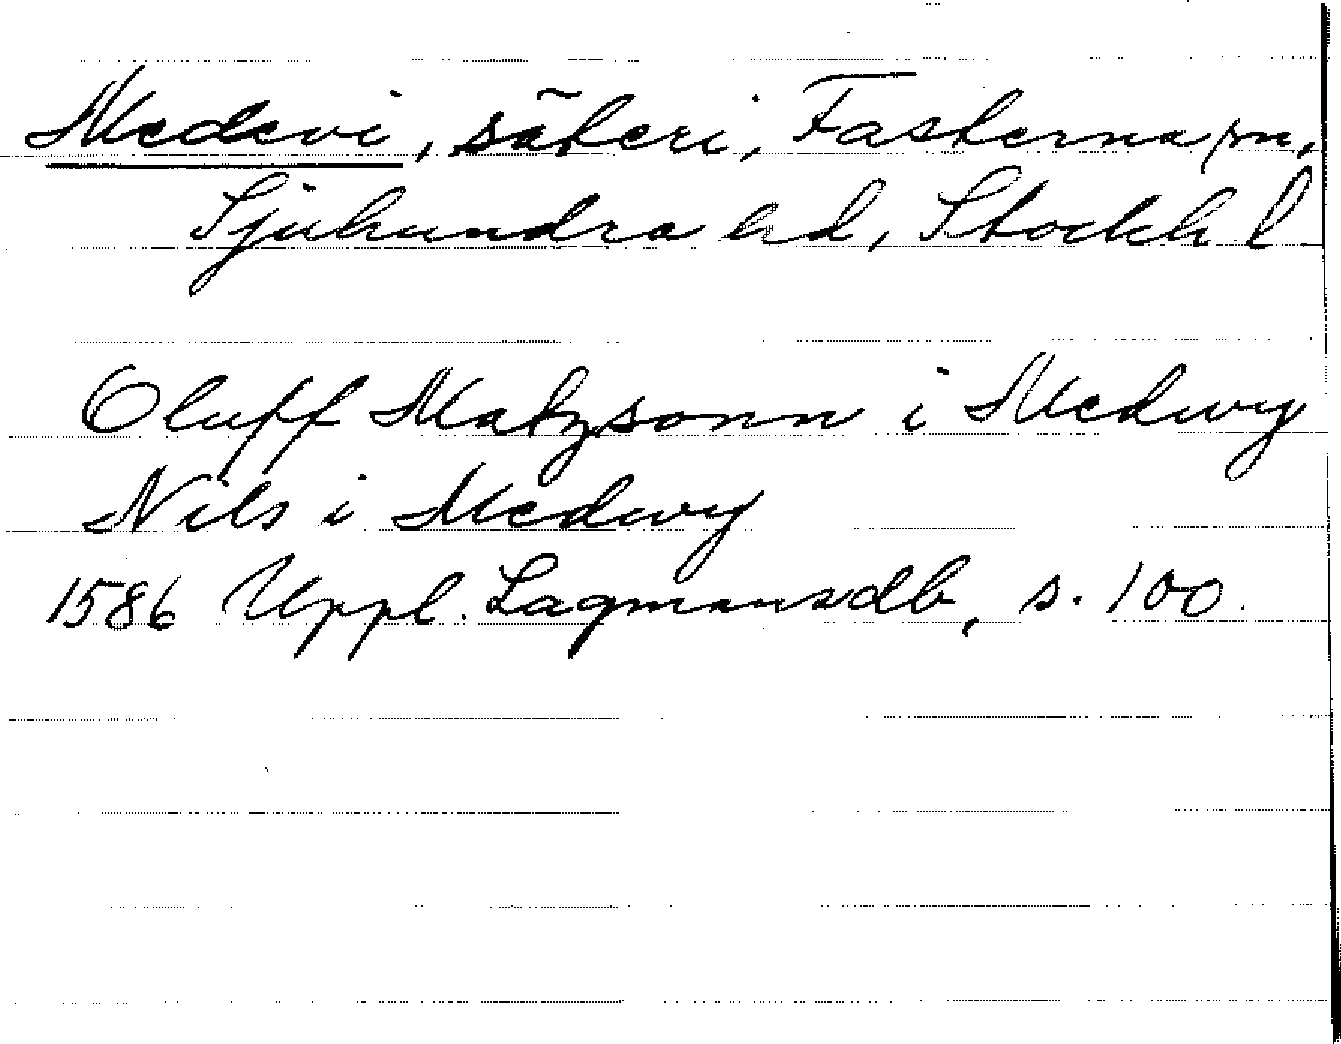 Medevi, säteri, Fasterna sn,
Sjuhundra hd, Stockh l
Oluff Matzsonn i Medwy
Nils i Medwy
1586 Uppl. Lagmansdb, s. 100.